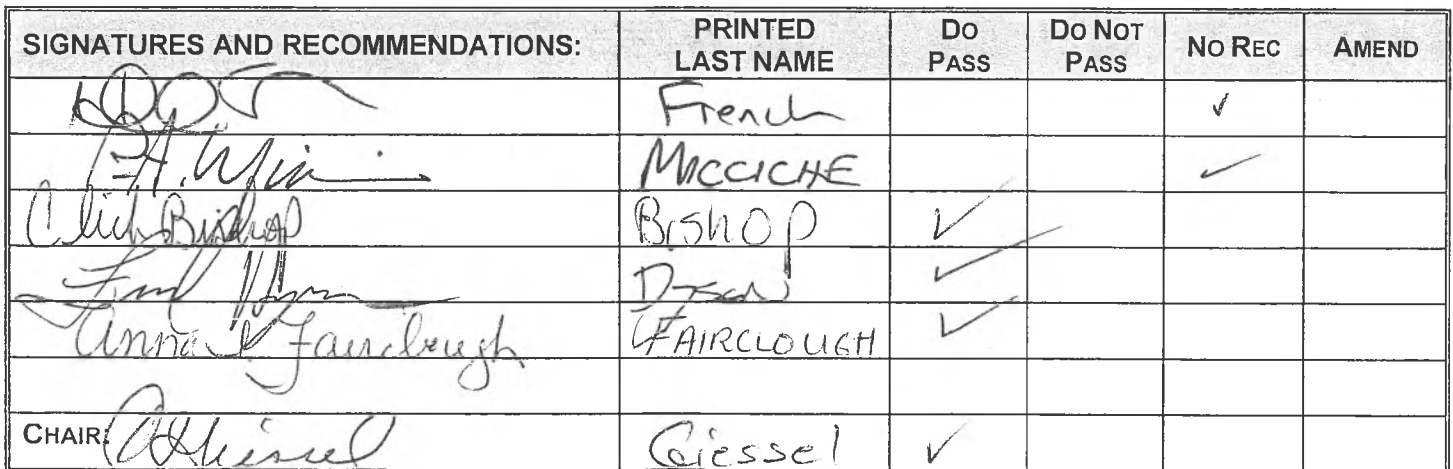 SIGNATURES AND RECOMMENDATIONS: PRINTED LAST NAME DO PASS DO NOT PASS NO REC AMEND
French ✓
MICCICHE ✓
Click Bishop Bishop ✓
Dyson ✓
Anna Fairclough FAIRCLOUGH ✓
CHAIR: Giessel ✓